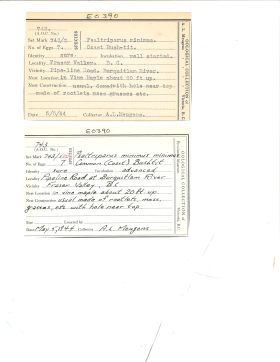 E0390
743.
(A.O.U. No.)
Set Mark 743/5 Psaltriparus minimus.
No. of Eggs 7. Coast Bush-tit.
Identity sure. Incubation well started.
Locality Fraser Valley. B. C.
Vicinity Pipe-line Road, Burquitlam River.
Nest Location in Vine Maple about 20 ft up.
Nest Construction usual, domed with hole near top
made of rootlets moss grasses etc.
Date 5/5/44 Collector A.L.Meugens.
E0390
743
(A.O.U. No.)
Set Mark 743/ Psaltriparus minimus minimus
No. of Eggs 7 Common (Coast) Bushtit
Identity sure Incubation advanced
Locality Pipeline Road at Burquitlam River
Vicinity Fraser Valley, B.C.
Nest Location in vine maple about 20 ft up
Nest Construction usual made of rootlets, moss,
grasses, etc with hole near top
Size Located by
Date May 5, 1944 Collector A.L. Meugens
OOLOGICAL COLLECTION of
Victoria, B.C.